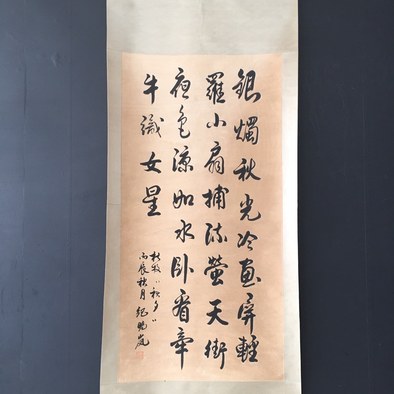 銀燭秋光冷画屏輕
羅小扇捕流螢天街
夜色涼如水卧看牽
牛識女星
杜牧《秋夕》
丙辰秋月纪晓岚